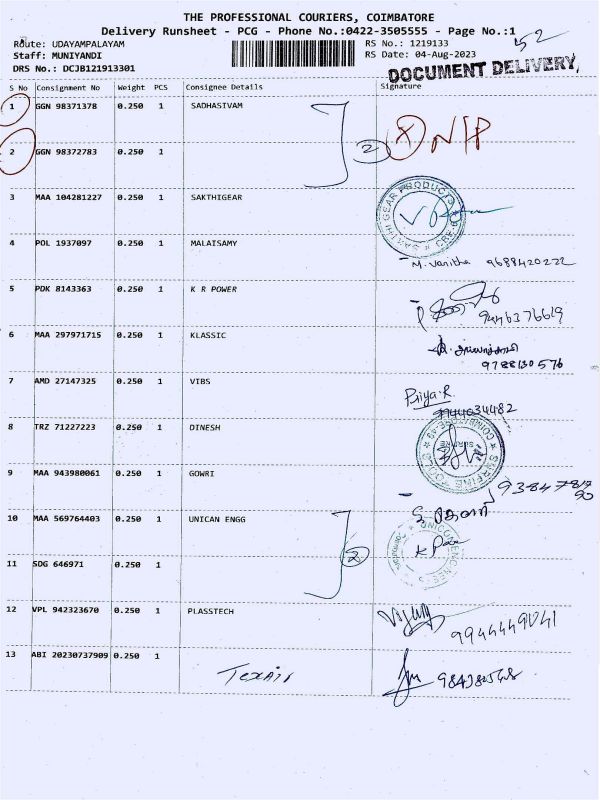 THE PROFESSIONAL COURIERS, COIMBATORE
Delivery Runsheet - PCG - Phone No.:0422-3505555 - Page No.:1
Route: UDAYAMPALAYAM RS No.: 1219133 52
Staff: MUNIYANDI RS Date: 04-Aug-2023
DRS No.: DCJB121913301 DOCUMENT DELIVERY,
S No Consignment No Weight PCS Consignee Details Signature
1 GGN 98371378 0.250 1 SADHASIVAM
2 (X) N/P
2 GGN 98372783 0.250 1
3 MAA 104281227 0.250 1 SAKTHIGEAR
SAKTHI GEAR PRODUCTS
4 POL 1937097 0.250 1 MALAISAMY
M. Vanitha 9688420222
5 PDK 8143363 0.250 1 K R POWER
9446376619
6 MAA 297971715 0.250 1 KLASSIC
9788130576
7 AMD 27147325 0.250 1 VIBS
Priya.R.
9944034482
8 TRZ 71227223 0.250 1 DINESH
SURFINE TOOLS
9 MAA 943980061 0.250 1 GOWRI
10 MAA 569764403 0.250 1 UNICAN ENGG
2
11 SDG 646971 0.250 1
12 VPL 942323670 0.250 1 PLASSTECH
9944449041
13 ABI 20230737909 0.250 1
Texair